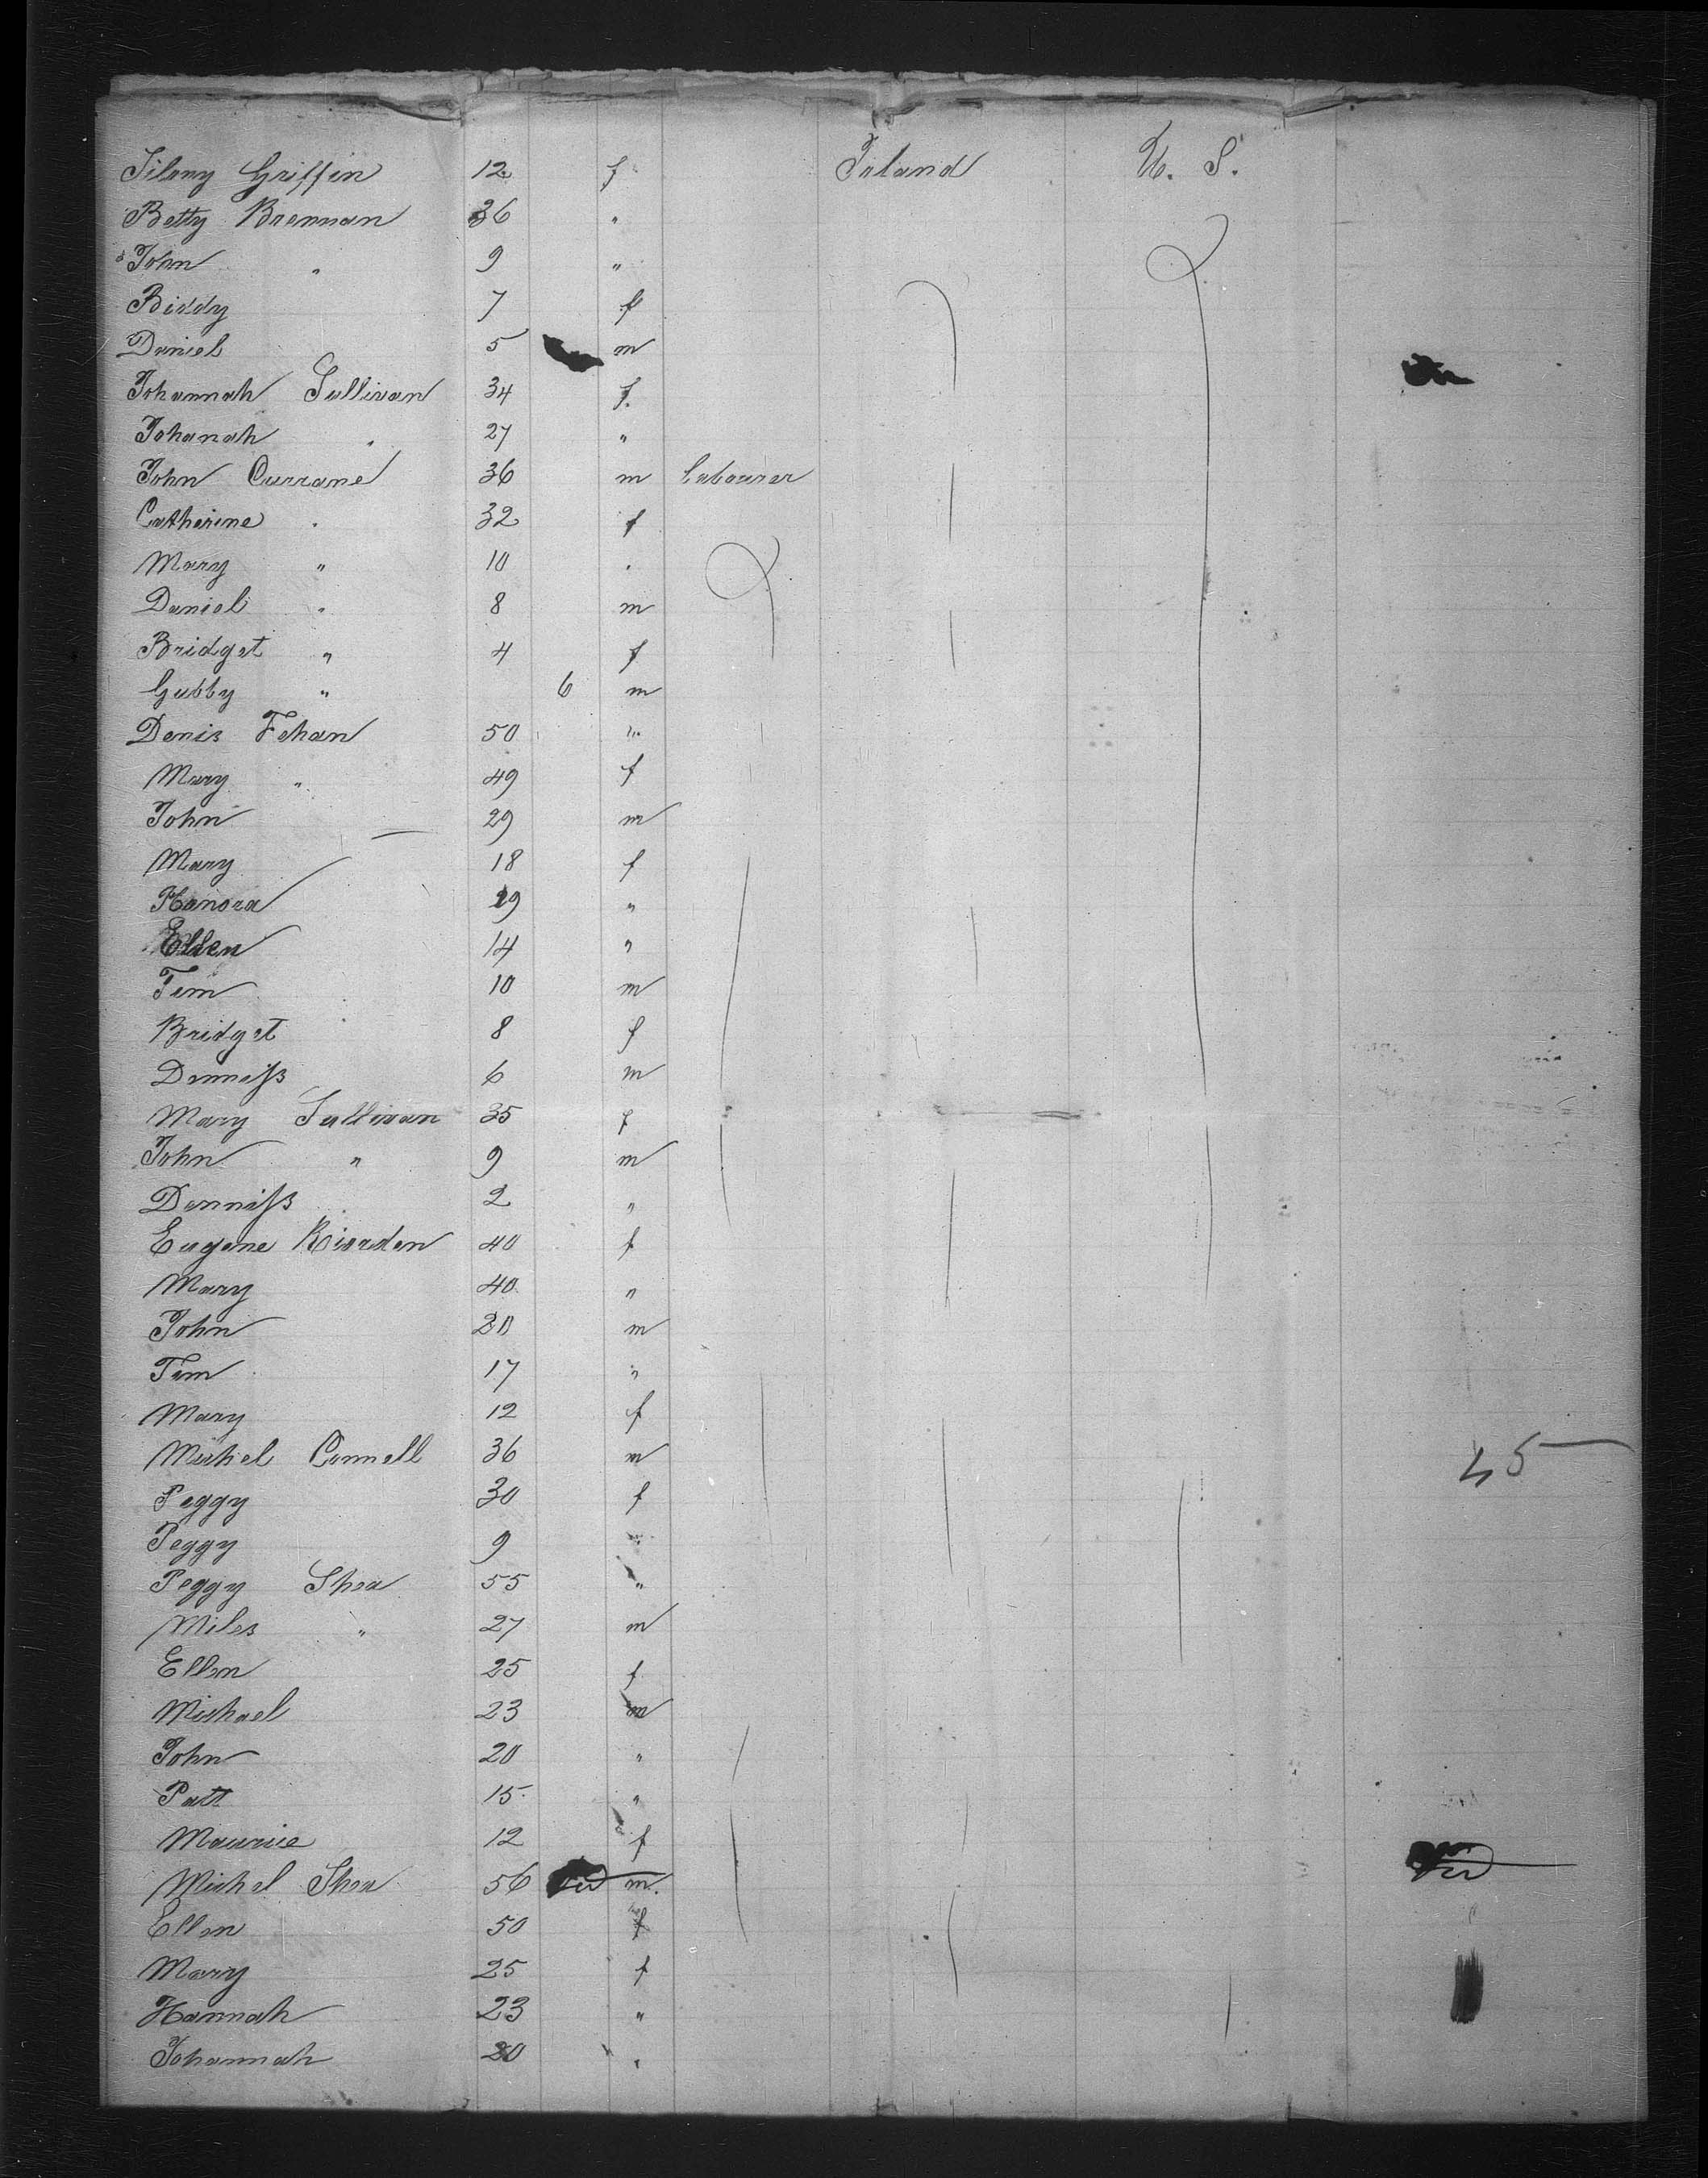 Silvny Griffin 12 f Irland U. S.
Betty Brennan 36 "
John " 9 "
Biddy 7 f
Daniel 5 m
Johannah Sullivan 34 f.
Johanah " 27 "
John Currane 36 m Labourer
Catherine " 32 f
Mary " 10 "
Daniel " 8 m
Bridget " 4 f
Gubby " 6 m
Denis Fehan 50 "
Mary " 49 f
John 29 m
Mary 18 f
Hanora 19 "
Ellen 14 "
Tim 10 m
Bridget 8 f
Denneß 6 m
Mary Sullivan 35 f
John " 9 m
Denniß 2 "
Eugene Riordan 40 f
Mary 40 "
John 20 m
Tim 17 "
Mary 12 f
Michel Connell 36 m
45
Peggy 30 f
Peggy 9 "
Peggy Shea 55 "
Miles " 27 m
Ellen 25 f
Michael 23 m
John 20 "
Patt 15 "
Maurice 12 f
Michel Shea 56 m.
Ellen 50 f
Mary 25 f
Hannah 23 "
Johannah 20 "